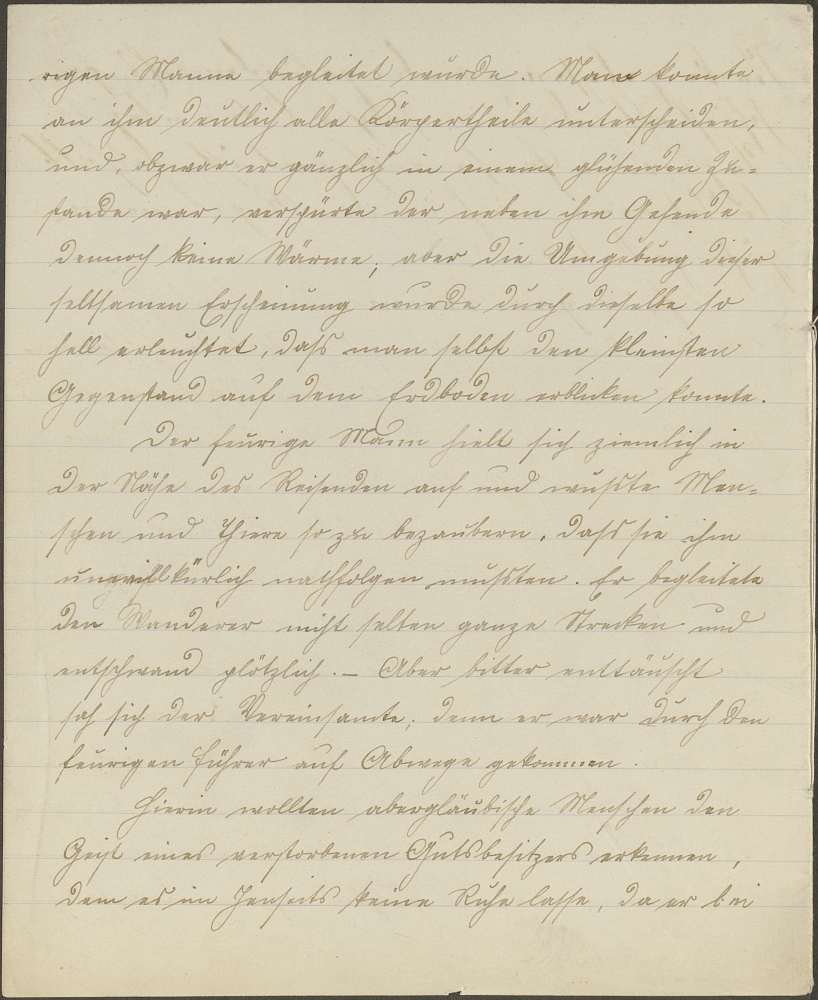 rigen Manne begleitet wurde. Man konnte
an ihm deutlich alle Körpertheile unterscheiden,
und, obzwar er gänzlich in einem glühenden Zu-
stande war, verspürte der neben ihm Gehende
dennoch keine Wärme; aber die Umgebung dieser
seltsamen Erscheinung wurde durch dieselbe so
hell erleuchtet, dass man selbst den kleinsten
Gegenstand auf dem Erdboden erblicken konnte.
Der feurige Mann hielt sich ziemlich in
der Nähe des Reisenden auf und wußte Men-
schen und Thiere so zu bezaubern, dass sie ihm
unwillkürlich nachfolgen mußten. Er begleitete
den Wanderer nicht selten ganze Strecken und
entschwand plötzlich. – Aber bitter enttäuscht
sah sich der Vereinsamte; denn er war durch den
feurigen Führer auf Abwege gekommen.
Hierin wollten abergläubische Menschen den
Geist eines verstorbenen Gutsbesitzers erkennen,
dem es im Jenseits keine Ruhe lasse, da er bei